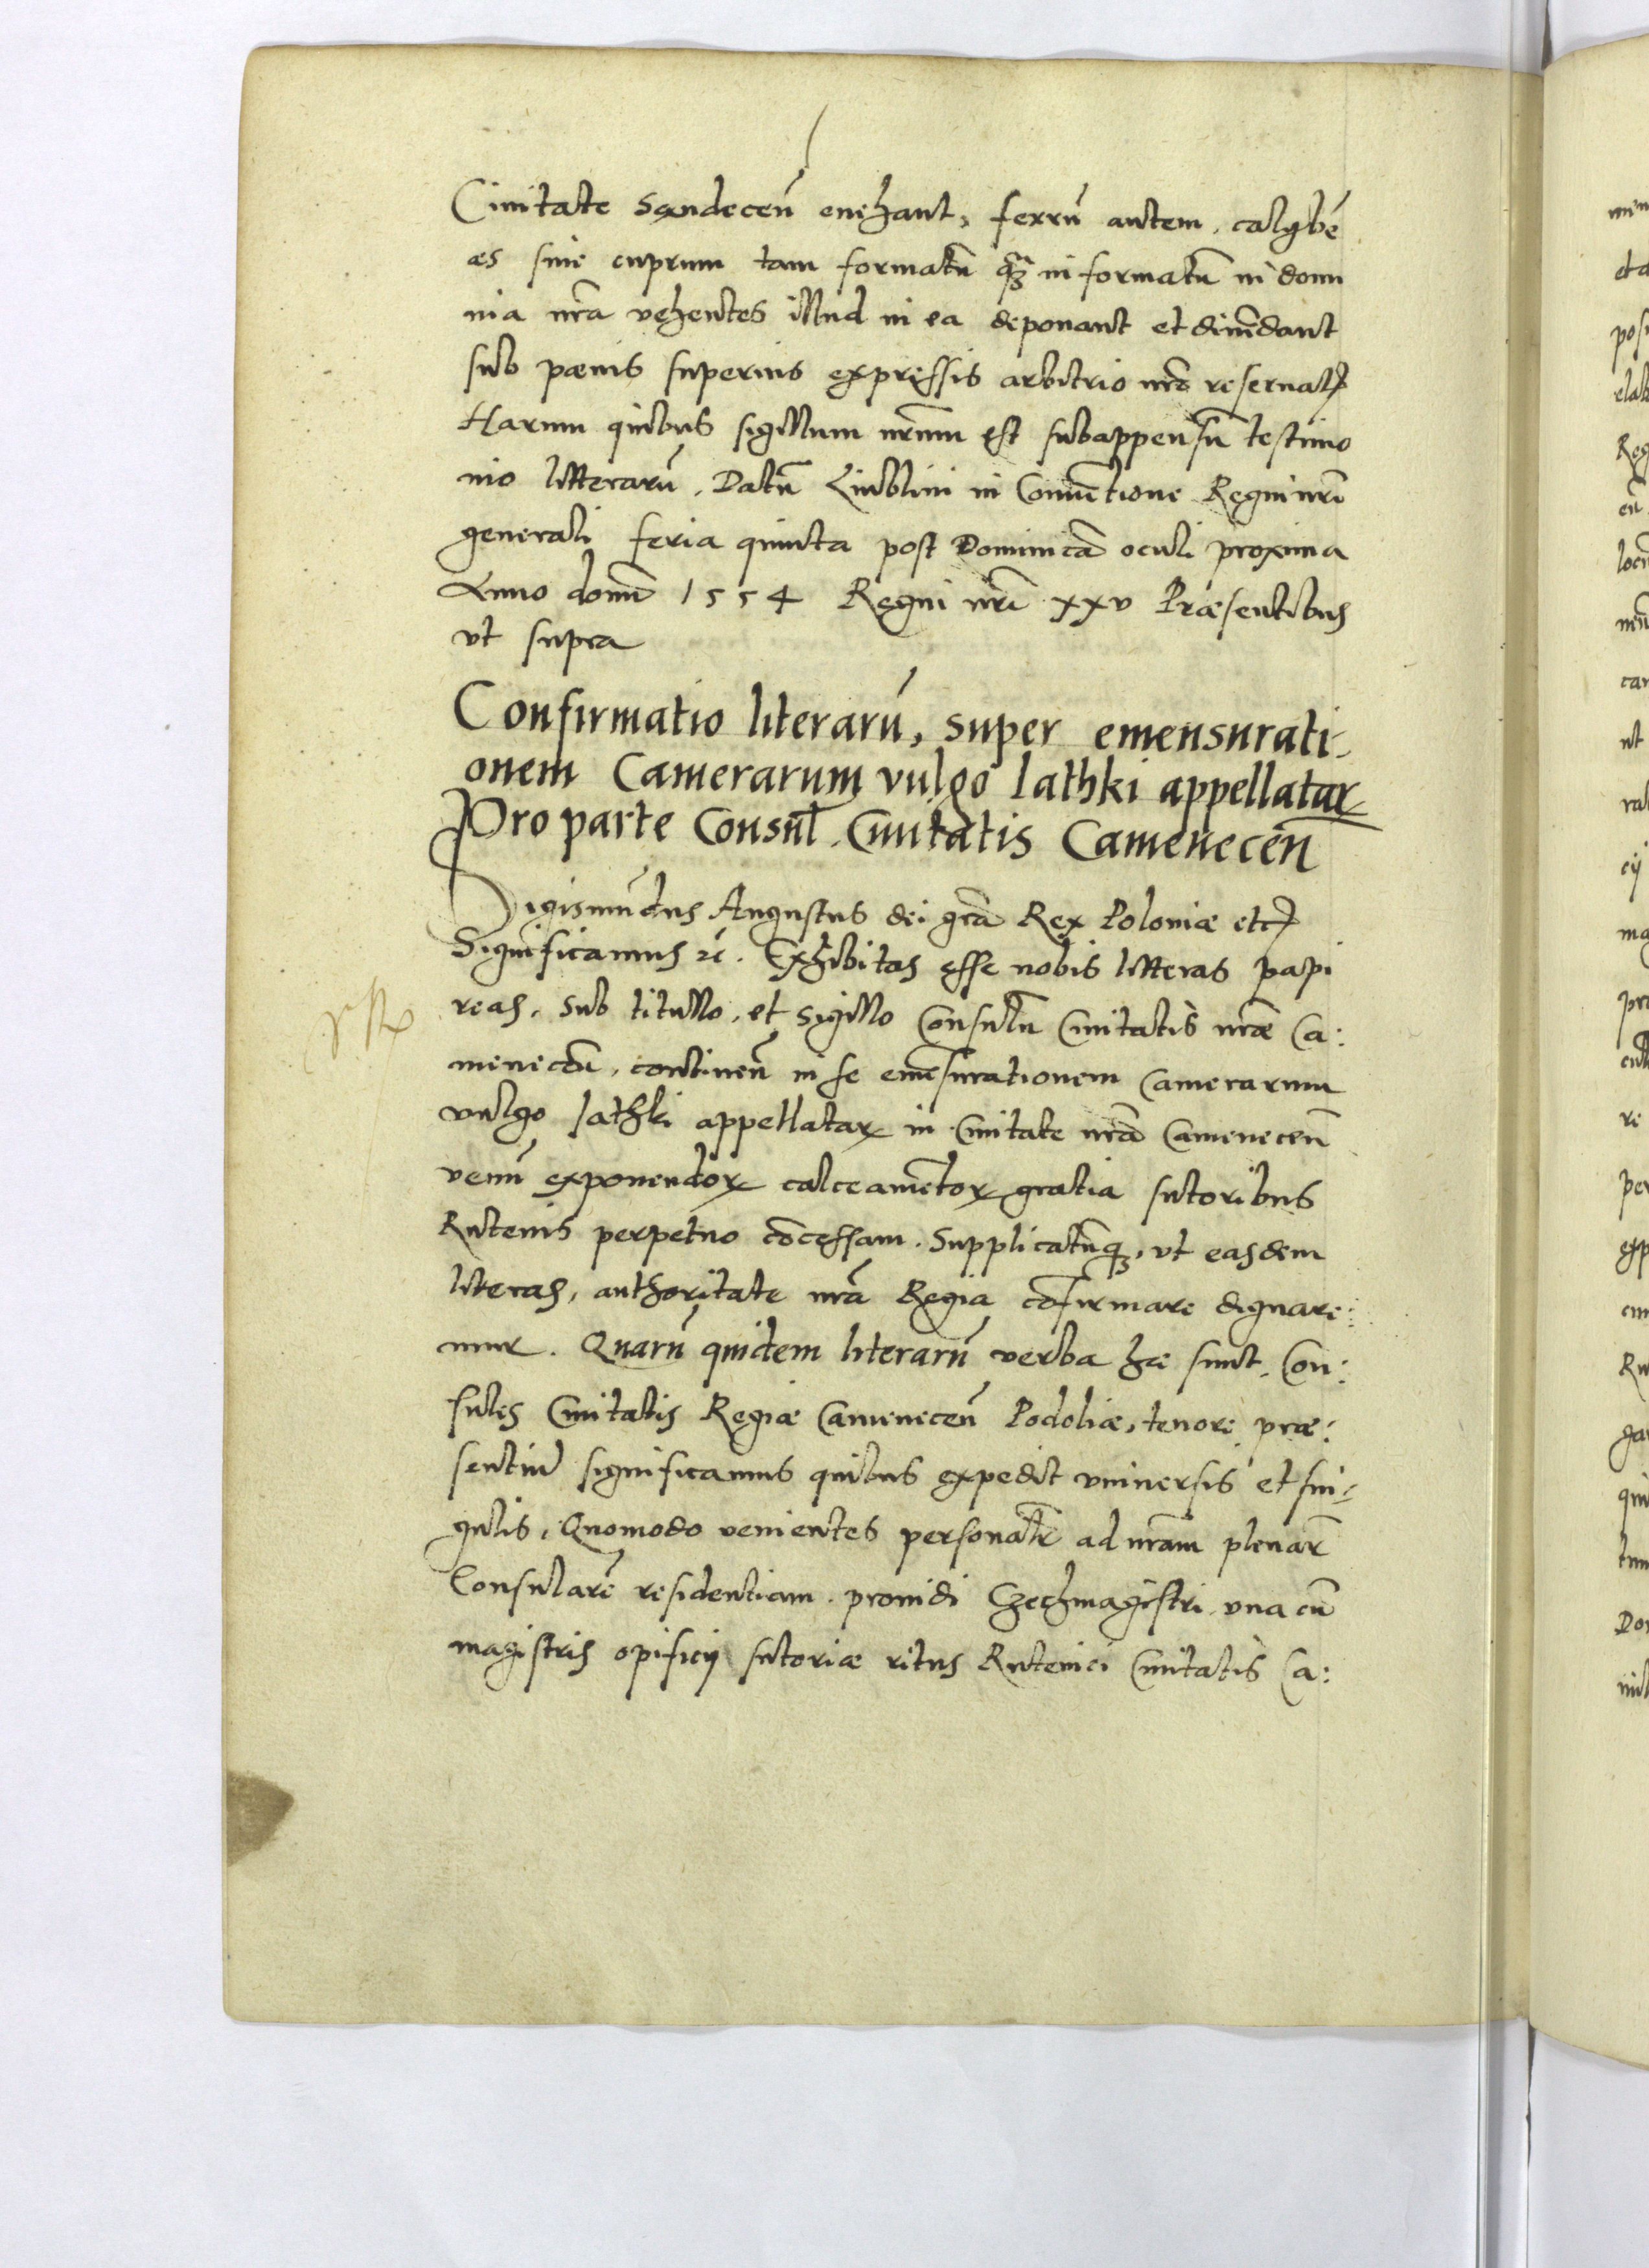 Ciuitate Sandeceñ euehant, ferrū autem, calybē
æs siue cuprum tam formatū q̄ȝ informatū in domi
nia nr̄a vehentes illud in ea deponant et diuēdant
sub pœnis superius expressis arbitrio nr̄o reseruatꝭ
Harum quibus sigillum nr̄um est subappensū testimo
nio litterarū. Datū Liublini in Conuētione Regni nr̄i
generali feria quinta post Dominicā oculi proxima
Anno domī 1554 Regni nr̄i xxv Præsentibus
vt supra
Confirmatio literarū, super emensurati-
onem Camerarum vulgo lathki appellatarꝝ
Pro parte Consul. Ciuitatis Cameneceñ
Sigismūdus Augustus dei grā Rex Poloniæ etcꝭ
Significamus &c. Exhibitas esse nobis litteras papi
reas, sub titullo, et sigillo Consulū Ciuitatis nr̄æ Ca:
meneceñ, continēn in se emēsurationem Camerarum
vulgo lathki appellataꝝ in Ciuitate nr̄a Cameneceñ
venū exponendoꝝ calceamētoꝝ gratia sutoribus
Rutenis perpetuo cōcessam. Supplicatūqȝ, vt easdem
literas, authoritate nr̄a Regia cōfirmare dignare:
mur. Quarū quidem literarū verba hæ sunt. Con:
sules Ciuitatis Regiæ Cameneceñ Podoliæ, tenore præ:
sentiū significamus quibus expedit vniuersis et sin-
gulis, Quomodo venientes personalr̄ ad nr̄am plenar̄
Consularē residentiam. prouidi Czechmagistri vna cū
magistris opificij sutoriæ ritus Rutenici Ciuitatis Ca: